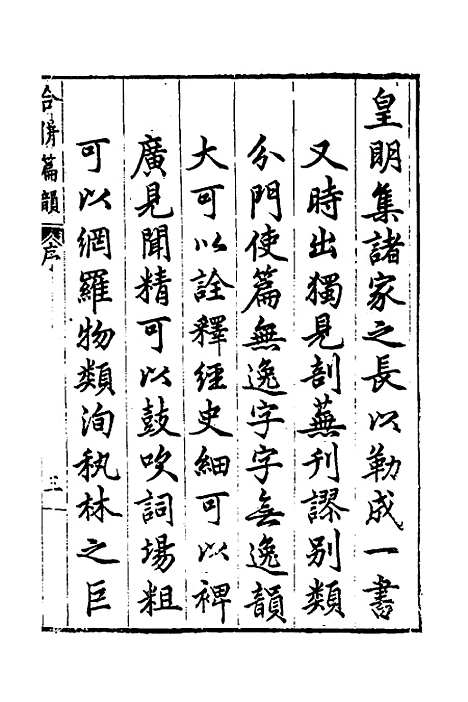 皇明集諸家之長以勒成一書
又時出獨見剖蕪刊謬别類
分門使篇無逸字字無逸韻
大可以詮釋經史細可以裨
廣見聞精可以鼓吹詞場粗
可以網羅物類洵秇林之巨
合併篇韻 序 三